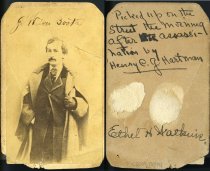 J. Wilkes Booth
Picked up on the
street the morning
after the assassi-
nation by
Henry C. G. Hartman
Ethel H Watkins